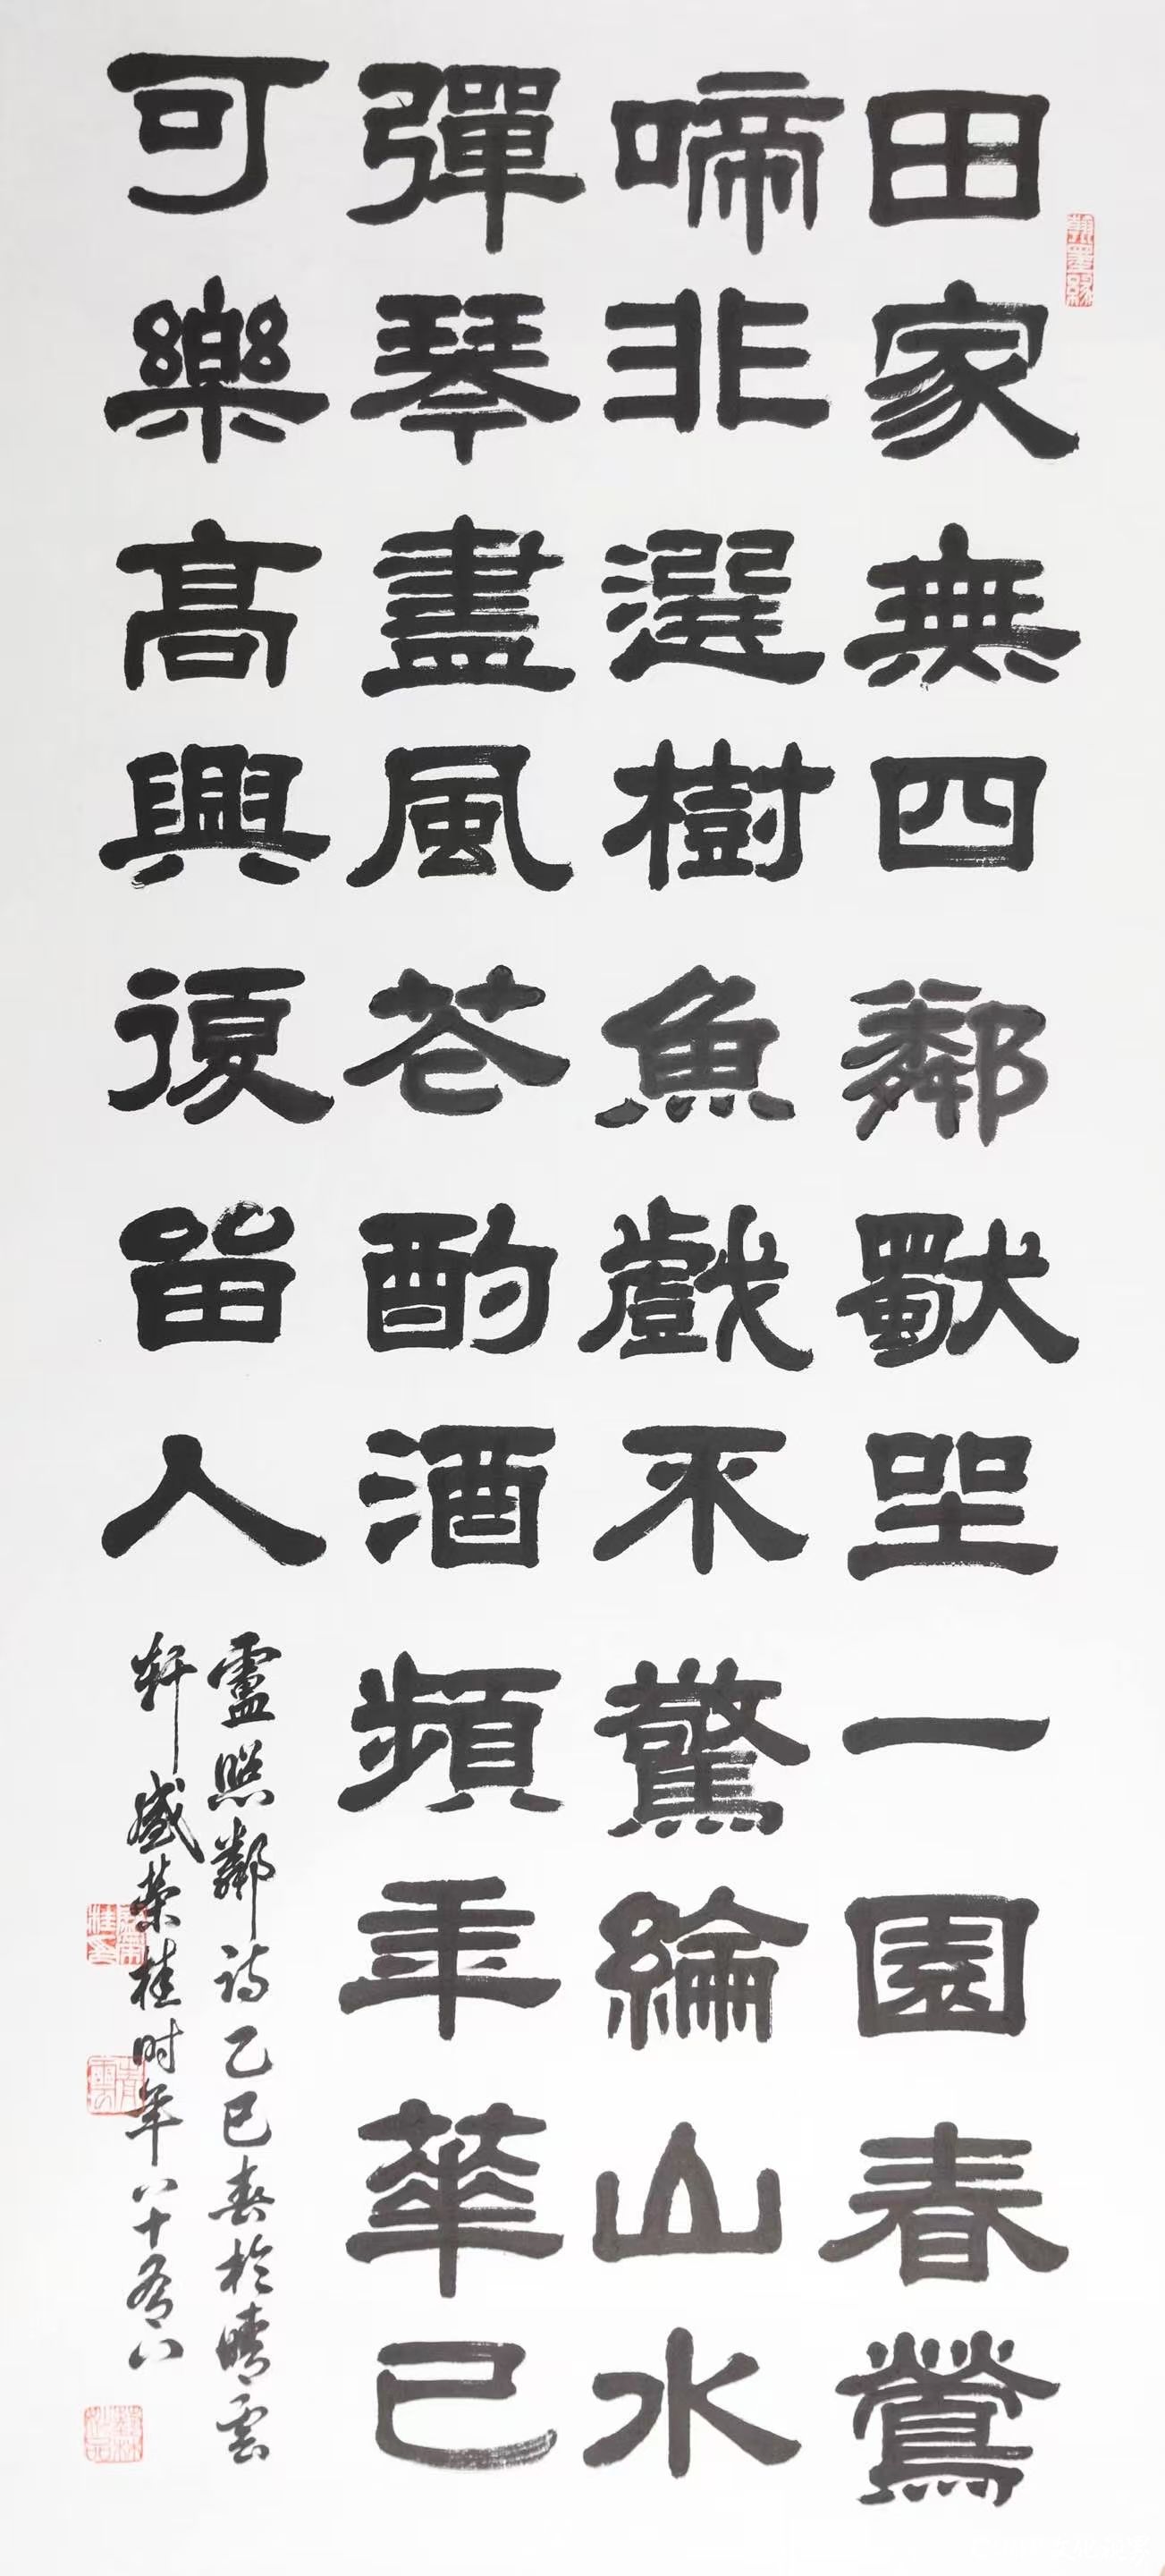 田家無四鄰獸坐一園春鶯
啼非選樹魚戲不驚綸山水
彈琴盡風花酌酒頻年華已
可樂高興復留人
盧照鄰诗乙巳春於晴雲
轩盛荣桂时年八十有八
翰墨緣